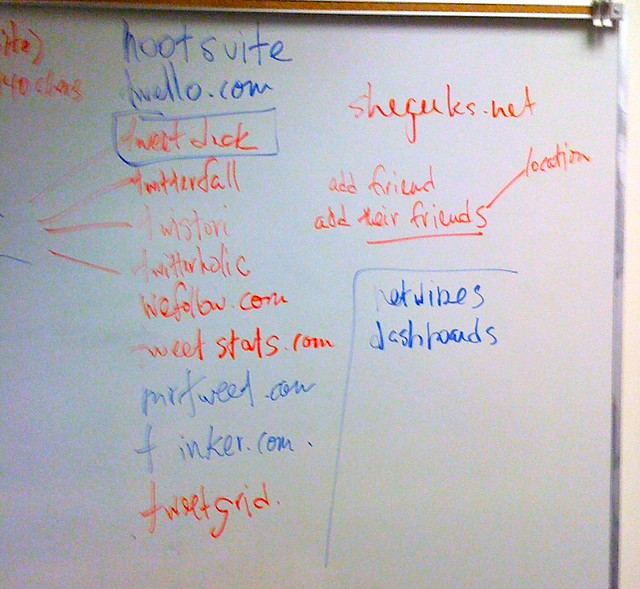 ite)
140 chars
hootsuite
twello.com
tweetdeck
twitterfall
twistori
twitterholic
wefollow.com
tweetstats.com
mrtweed.com
t inker.com.
tweetgrid.
shegeeks.net
location
add friend
add their friends
netvibes
dashboards